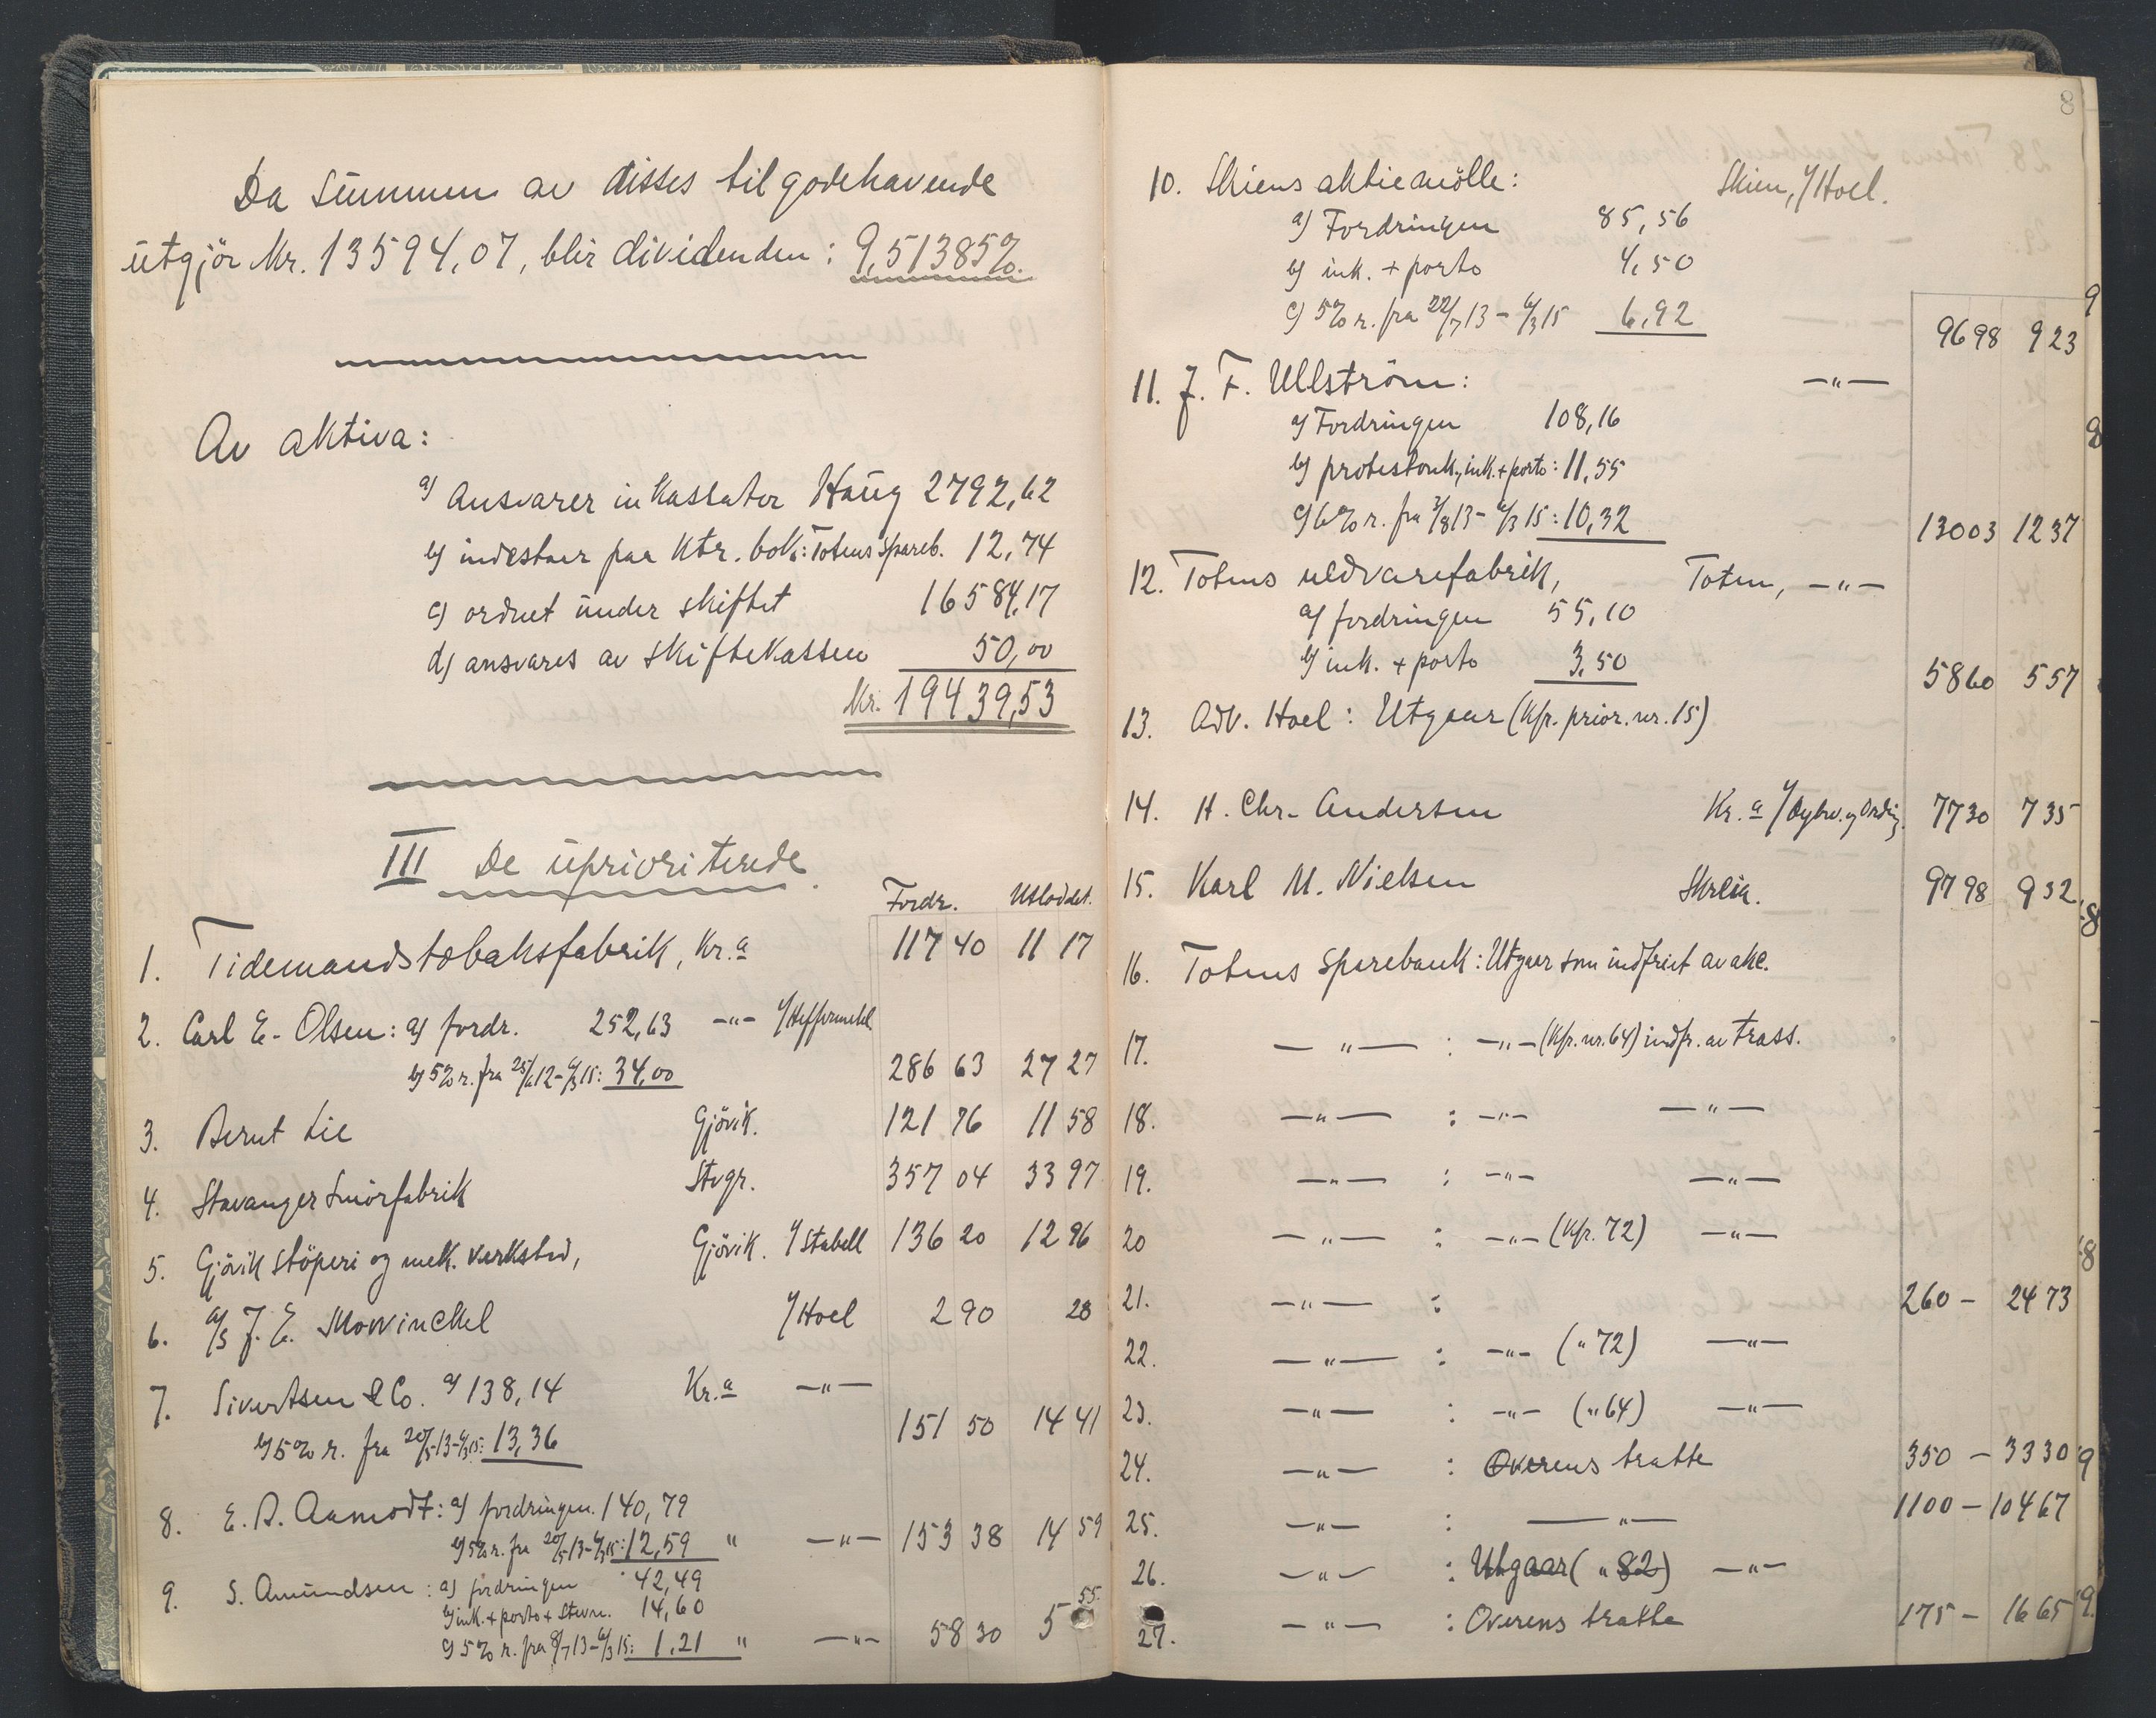 Da summen av disses tilgodehavende
utgjör Kr. 13594,07, blir dividenden: 9,51385%.
Av aktiva:
a) Ansvarer inkassator Haug 2792,62
b) indestaar paa Ktr. bok i Totens Spareb. 12,74
c) ordnet under skiftet 16584,17
d) ansvares av skiftekassen 50,00
Kr. 19439,53
III De uprioriterede.
Fordr. Utloddet.
1. Tidemands tobaksfabrik, Kr.a 117 40 11 17
2. Carl E. Olsen: a) fordr. 252,63 -"- v/Heffermehl
b) 5% r. fra 25/6 12 - 6/3 15: 34,00 286 63 27 27
3. Bernt Lie Gjövik. 121 76 11 58
4. Stavanger Smörfabrik Stvgr. 357 04 33 97
5. Gjövik Stöperi og mek. verksted, Gjövik. v/Stabell 136 20 12 96
6. A/S J. E. Mowinckel v/Hoel 2 90 28
7. Sivertsen & Co. a) 138,14 Kr.a -"-
b) 5% r. fra 20/5 13 - 6/3 15: 13,36 151 50 14 41
8. E. A. Aamodt: a) fordringen. 140,79
b) 5% r. fra 20/5 13 - 6/3 15: 12,59 " -"- 153 38 14 59
9. S. Amundsen: a) fordringen 42,49
b) ink. + porto + Stevn. 14,60
c) 5% r. fra 8/7 13 - 6/3 15: 1,21 " -"- 58 30 5 55.
8
10. Skiens aktiemölle: Skien, v/Hoel.
a) Fordringen 85,56
b) ink. + porto 4,50
c) 5% r. fra 22/7 13 - 6/3 15 6,92 96 98 9 23
11. J. F. Ullström: -"-
a) Fordringen 108,16
b) protestomk, ink. + porto: 11,55
c) 6% r. fra 3/8 13 - 6/3 15: 10,32 130 03 12 37
12. Totens uldvarefabrik, Toten, -"-
a) fordringen 55,10
b) ink. + porto 3,50 58 60 5 57
13. Adv. Hoel: Utgaar (Kfr. prior. nr. 15)
14. H. Chr. Andersen Kr.a 77 30 7 35
15. Karl M. Nielsen Skreia. 97 98 9 32
16. Totens Sparebank: Utgaar som indfriet av akc.
17. -"- : -"- (Kfr. nr. 64) indfr. av trass.
18. -"- : -"- -"-
19. -"- : -"- -"-
20 -"- : -"- (Kfr. 72) -"-
21. -"- : 260 - 24 73
22. -"- : -"- (" 72) -"-
23. -"- : -"- (" 64) -"-
24. -"- : Overens tratte 350 - 33 30
25. -"- : -"- 1100 - 104 67
26. -"- : Utgaar (" 82) -"-
27. -"- : Overens tratte 175 - 16 65